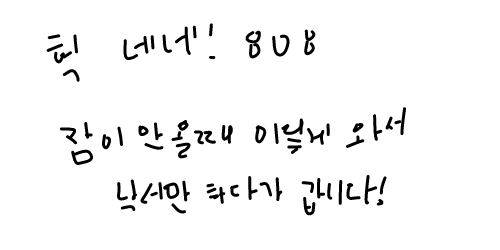 헉 네네! 808
잠이 안올때 이렇게 와서
낙서만 하다가 갑니다!